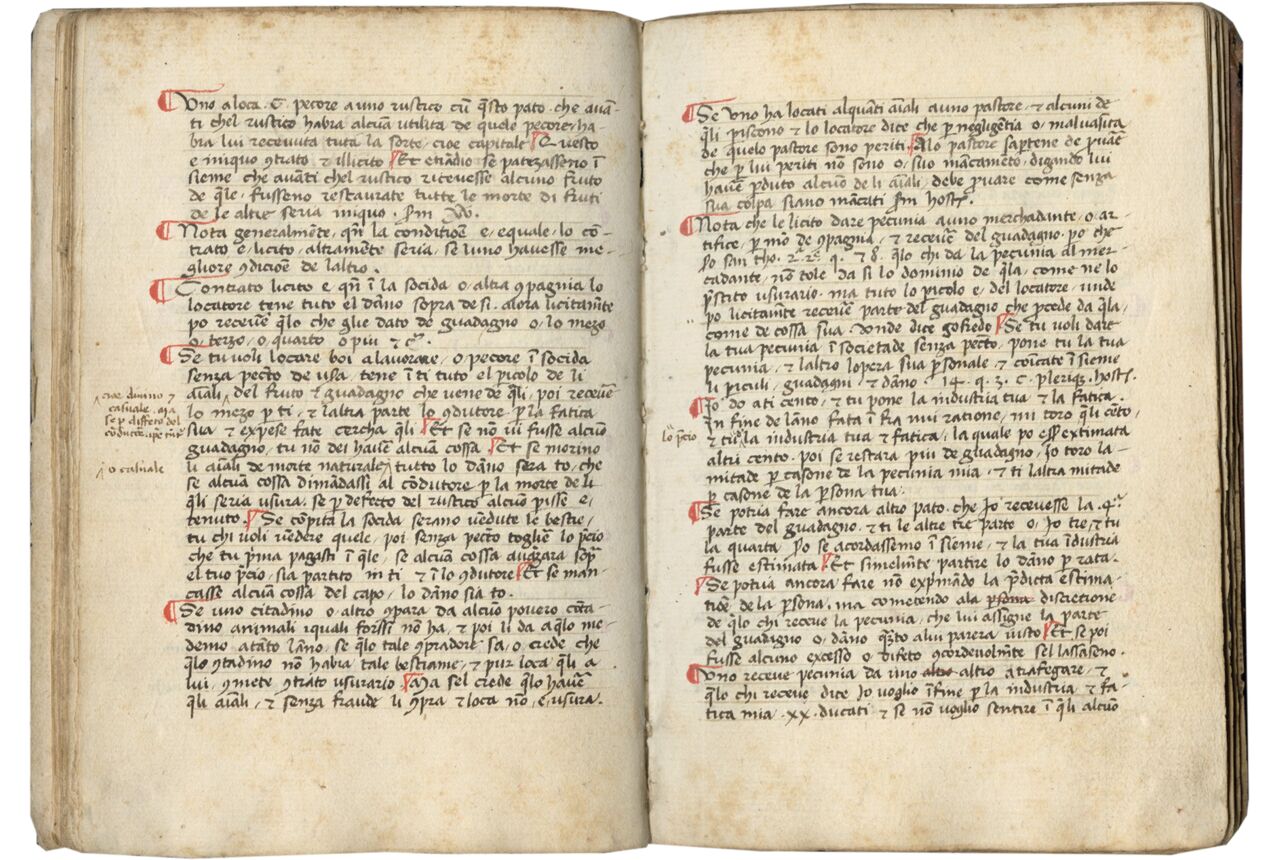 Uno aloca · C · pecore a uno rustico cū q̄sto pato · che auā-
ti chel rustico habia alcuā utilita de quele pecore · ha-
bia lui receuuta tuta la sorte, cioe capitale Questo
e iniquo ꝯtrato & illicito Et etiādio se patezasseno ī
sieme che auāti chel rustico riceuesse alcuno fruto
de q̄le, fusseno restaurate tutte le morte di fruti
de le altre seria iniquo ·
Nota generalmēte, qn̄ la conditioē e, equale, lo cō-
trato e, licito, altramēte seria, se luno hauesse me-
gliore ꝯdicioē de laltro ·
Contrato licito e, qn̄ ī la socida o, altra ꝯpagnia lo
locatore tene tuto el dāno sopra de si · alora licitamēte
po receuere q̄lo che glie dato de guadagno o, lo mezo
o, terzo, o, quarto o piu & c̄ ·
Se tu uoli locare boi a lauorare, o, pecore ī socida
senza pecto de usa, tene ī ti tuto el piculo de li
aīali, del fruto & guadagno che uene de q̄li, poi receuere
cioe diuino &
casuale · ma
se p differo del
lo mezo p ti, & laltra parte lo ꝯdutore p la fatica
sua & expese fate cercha q̄li Et se nō ui fusse alcuō
guadagno, tu nō dei hauere alcuā cossa Et se morino
li aīali de morte naturale, tutto lo dāno sera to, che
o casuale
se alcuā cossa dimādassi al cōdutore p la morte de li
q̄li seria usura · se p defecto del rustico alcuō pisse e,
tenuto · Se cōpita la socida serano uēdute le bestie,
tu chi uoli uēdere quele, poi senza pecto togliere lo pcio
che tu pma pagasti ī q̄le, se alcuā cossa auāzara sop̄
el tuo pcio, sia partito in ti & ī lo ꝯdutore Et se man-
casse alcuā cossa del capo, lo dāno sia to ·
Se uno citadino o altro ꝯpara da alcuō pouero cōta-
dino animali iquali forssi nō ha, & poi li da a q̄lo me-
demo a tāto lāno, se q̄lo tale ꝯpradore sa, o, crede che
q̄lo ꝯtadino nō habia tale bestiame, & pur loca q̄li a
lui, ꝯmete ꝯtrato usurario · Ma sel crede q̄lo hauere
q̄li aīali, & senza fraude li ꝯpra & loca nō e, usura ·
Se uno ha locati alquāti aīali a uno pastore, & alcuni de
q̄li piscono & lo locatore dice che p negligētia o, maluasita
de quelo pastore sono periti · Alo pastore saptene de puare
che p lui periti nō sono o, suo mācamēto, digando lui
hauere pduto alcuō de li aīali, debe puare come senza
sua colpa siano mācati
Nota che le licito dare pecunia a uno merchadante, o ar-
tifice, p mō de ꝯpagnia, & receuere del guadagno, po che
cadante, nō tole da si lo dominio de q̄la, come ne lo
pstito usurario · ma tuto lo picolo e, del locatore, unde
po licitamēte receuere parte del guadagno che pcede da q̄la,
come de cossa sua · Donde dice gofredo Se tu uoli dare
la tua pecunia ī societade senza pecto, pone tu la tua
pecunia, & laltro lopera sua psonale, & cōicate ī sieme
li piculi, guadagni & dāno ·
Io do a ti cento, & tu pone la industria tua & la fatica ·
In fine de lāno fata ī fra nui ratione, mi toro q̄li cēto,
lo pcio
la industria tua & fatica, la quale po esse extimata
altri cento · poi se restara piu de guadagno, Io toro la
mitade p casone de la pecunia mia, & ti laltra mitade
p casone de la psona tua ·
Se potria fare ancora altro pato · che Io receuesse la · 4ᵃ
parte del guadagno, & ti le altre tre parte o, Io tre, & tu
la quarta so se acordassemo ī sieme, & la tua īdustria
fusse estimata Et similmēte partire lo dāno p rata ·
Se potria ancora fare nō expimādo la pdicta estima-
tiōe de la psona, ma cometendo ala persona discretione
de q̄lo chi receue la pecunia, che lui assigne la parte
del guadagno o, dāno quāto a lui parera iusto Et se poi
fusse alcuno excesso o difeto ꝯcordeuolmēte sel lassaseno ·
Uno receue pecunia da uno altro altro a trafegare, &
q̄lo chi receue dice Io uoglio ī fine p la industria & fa-
tica mia · xx · ducati & se nō uoglio sentire ī q̄li alcuō